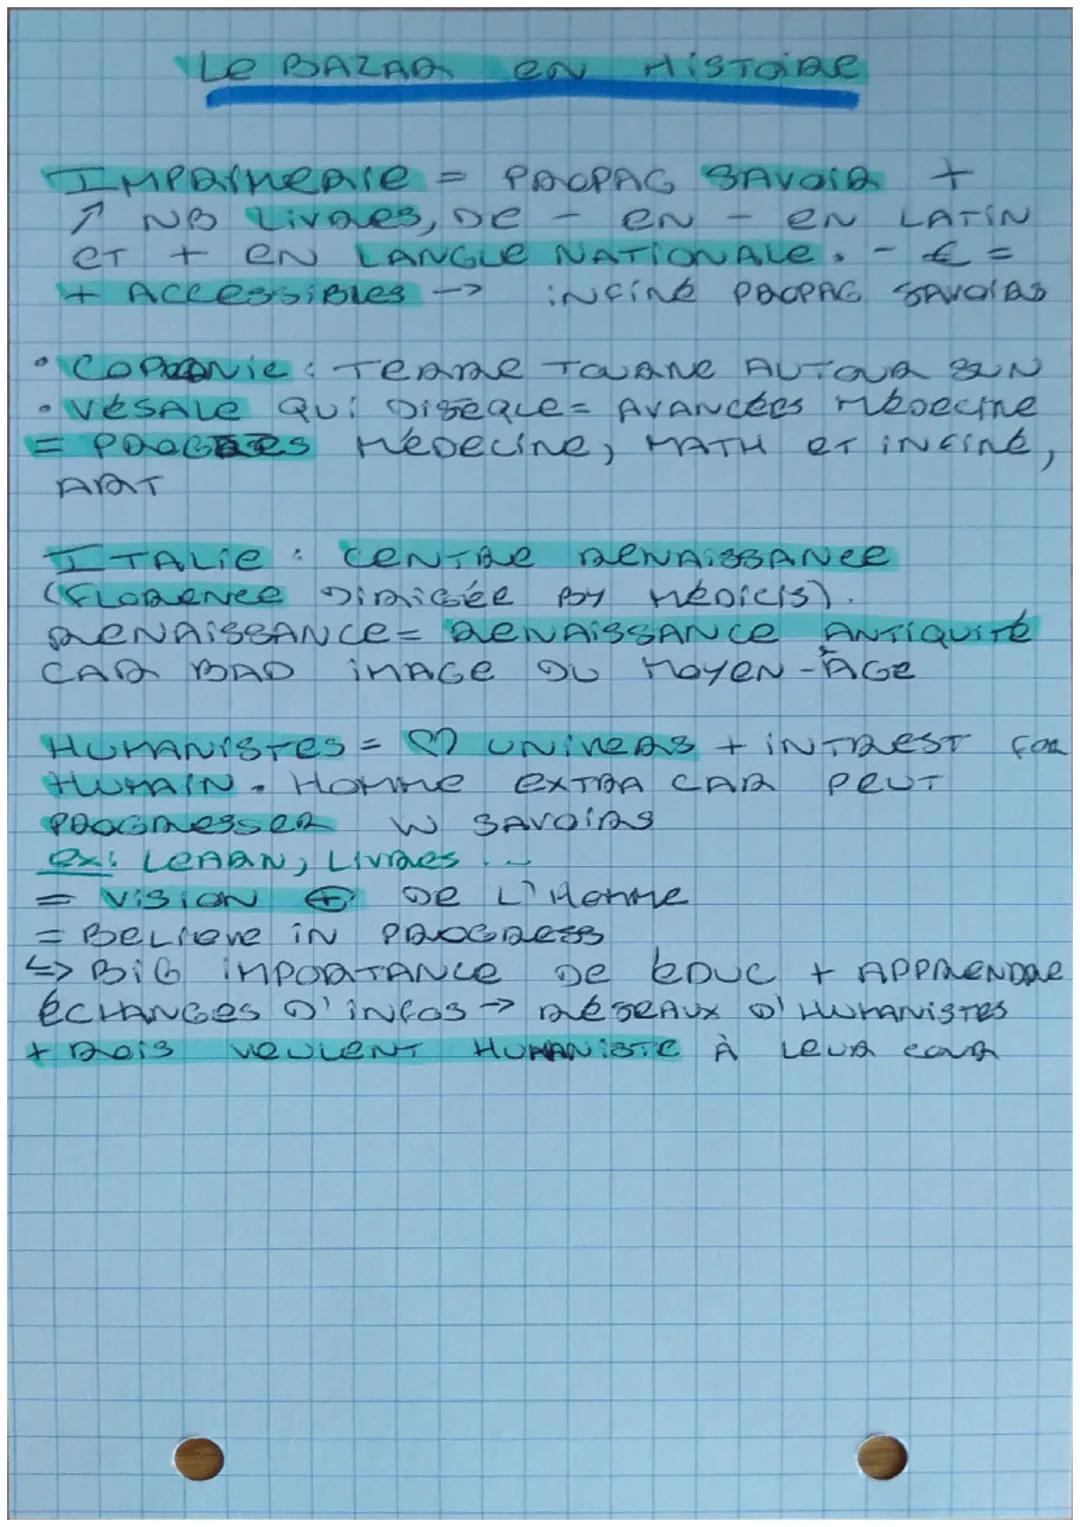 Le BAZAR en HISTOIRE
IMPRIMERIE = PROPAG SAVOIR +
↗ NB LIVRES, DE - EN - EN LATIN
ET + EN LANGUE NATIONALE. - € =
+ ACCESSIBLES -> INFINÉ PROPAG SAVOIRS
• COPERNIC : TERRE TOURNE AUTOUR SUN
• VÉSALE QUI DISÈQUE = AVANCÉES MÉDECINE
= PROGRÈS MÉDECINE, MATH ET INFINÉ,
ART
ITALIE : CENTRE RENAISSANCE
(FLORENCE DIRIGÉE BY MÉDICIS).
RENAISSANCE = RENAISSANCE ANTIQUITÉ
CAR BAD IMAGE DU MOYEN-ÂGE
HUMANISTES = ♡ UNIVERS + INTREST FOR
HUMAIN. HOMME EXTRA CAR PEUT
PROGRESSER W SAVOIRS
ex: LEARN, LIVRES...
= VISION ⊕ DE L'HOMME
= BELIEVE IN PROGRESS
↳ BIG IMPORTANCE DE ÉDUC + APPRENDRE
ÉCHANGES D'INFOS → RÉSEAUX D'HUMANISTES
+ ROIS VEULENT HUMANISTE À LEUR COUR